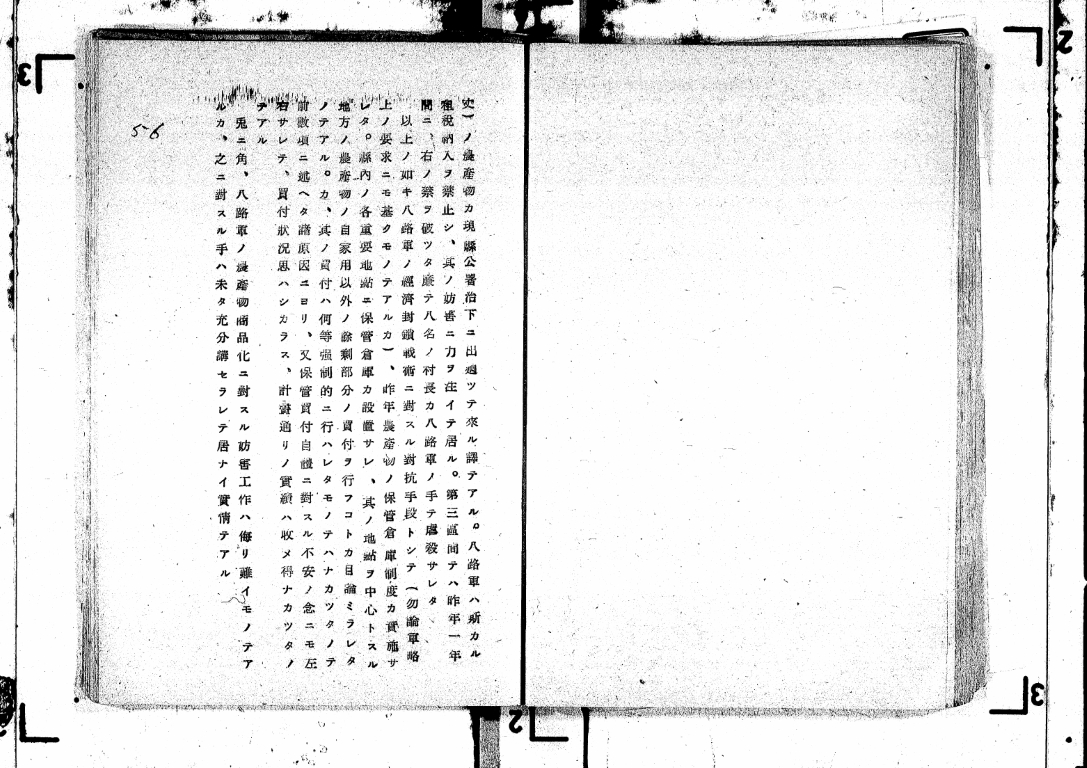 文)ノ農産物カ現縣公署治下ニ出廻ツテ來ル譯テアル。八路軍ハ斯カル
租税納入ヲ禁止シ、其ノ妨害ニ力ヲ注イテ居ル。第三區間テハ昨年一年
間ニ、右ノ禁ヲ破ツタ廉テ八名ノ村長カ八路軍ノ手テ虐殺サレタ
以上ノ如キ八路軍ノ經濟封鎖戰術ニ對スル對抗手段トシテ(勿論軍略
上ノ要求ニモ基クモノテアルカ)、昨年農産物ノ保管倉庫制度カ實施サ
レタ。縣内ノ各重要地點ニ保管倉庫カ設置サレ、其ノ地點ヲ中心トスル
地方ノ農産物ノ自家用以外ノ餘剩部分ノ買付ヲ行フコトカ目論ミラレタ
ノテアル。カ、其ノ買付ハ何等强制的ニ行ハレタモノテハナカツタノテ
前數項ニ述ヘタ諸原因ニヨリ、又保管買付自體ニ對スル不安ノ念ニモ左
右サレテ、買付狀況思ハシカラス、計劃通リノ實績ハ收メ得ナカツタノ
テアル
兎ニ角、八路軍ノ農産物商品化ニ對スル妨害工作ハ侮リ難イモノテア
ルカ、之ニ對スル手ハ未タ充分講セラレテ居ナイ實情テアル
56
2
3
3
2